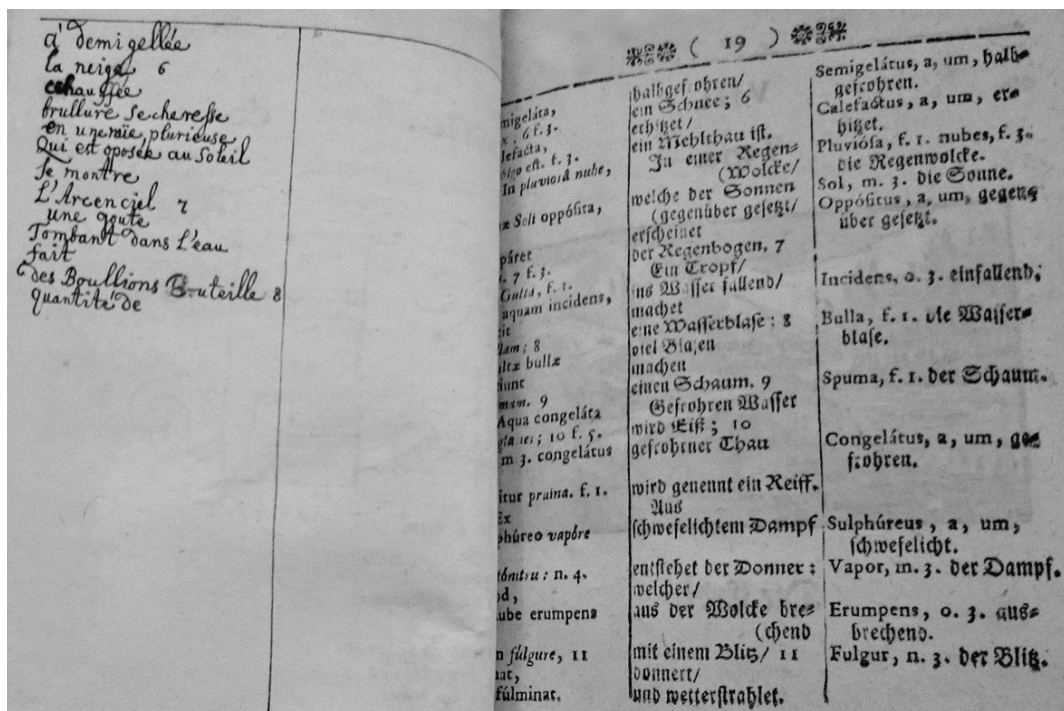 a' demi gellée
la neige 6
echauffée
brullure secheresse
en une nuie, plurieuse
Qui est oposée au Soleil
Se montre
L'Arcenciel 7
une goute
Tombant dans L'eau
fait
des Boullions Bouteille 8
quantité de
( 19 )
migeláta,
x; 6 f. 3.
lefacta,
bigo est. f. 3.
In pluviosâ nube,
æ Soli oppósita,
páret
s. 7 f. 3.
Gutta, f. 1.
aquam incidens,
cit
llam; 8
ultæ bullæ
iunt
mam. 9
Aqua congeláta
glacies; 10 f. 5.
m 3. congelátus
itur pruina. f. 1.
Ex
phúreo vapóre
tónitru: n. 4.
od,
ube erumpens
n fúlgure, 11
nat,
fúlminat.
halbgefrohren/
ein Schnee; 6
erhitzet/
ein Mehlthau ist.
In einer Regen-
(Wolcke/
welche der Sonnen
(gegenüber gesetzt/
erscheinet
der Regenbogen. 7
Ein Tropf/
ins Wasser fallend/
machet
eine Wasserblase; 8
viel Blasen
machen
einen Schaum. 9
Gefrohren Wasser
wird Eiß; 10
gefrohrner Thau
wird genennt ein Reiff.
Aus
schwefelichtem Dampf
entstehet der Donner:
welcher/
aus der Wolcke bre-
(chend
mit einem Blitz/ 11
donnert/
und wetterstrahlet.
Semigelátus, a, um, halb-
gefrohren.
Calefactus, a, um, er-
hitzet.
Pluviósa, f. 1. nubes, f. 3.
die Regenwolcke.
Sol, m. 3. die Sonne.
Oppósitus, a, um, gegen-
über gesetzt.
Incidens, o. 3. einfallend.
Bulla, f. 1. die Wasser-
blase.
Spuma, f. 1. der Schaum.
Congelátus, a, um, ge-
frohren.
Sulphúreus, a, um,
schwefelicht.
Vapor, m. 3. der Dampf.
Erumpens, o. 3. aus-
brechend.
Fulgur, n. 3. der Blitz.